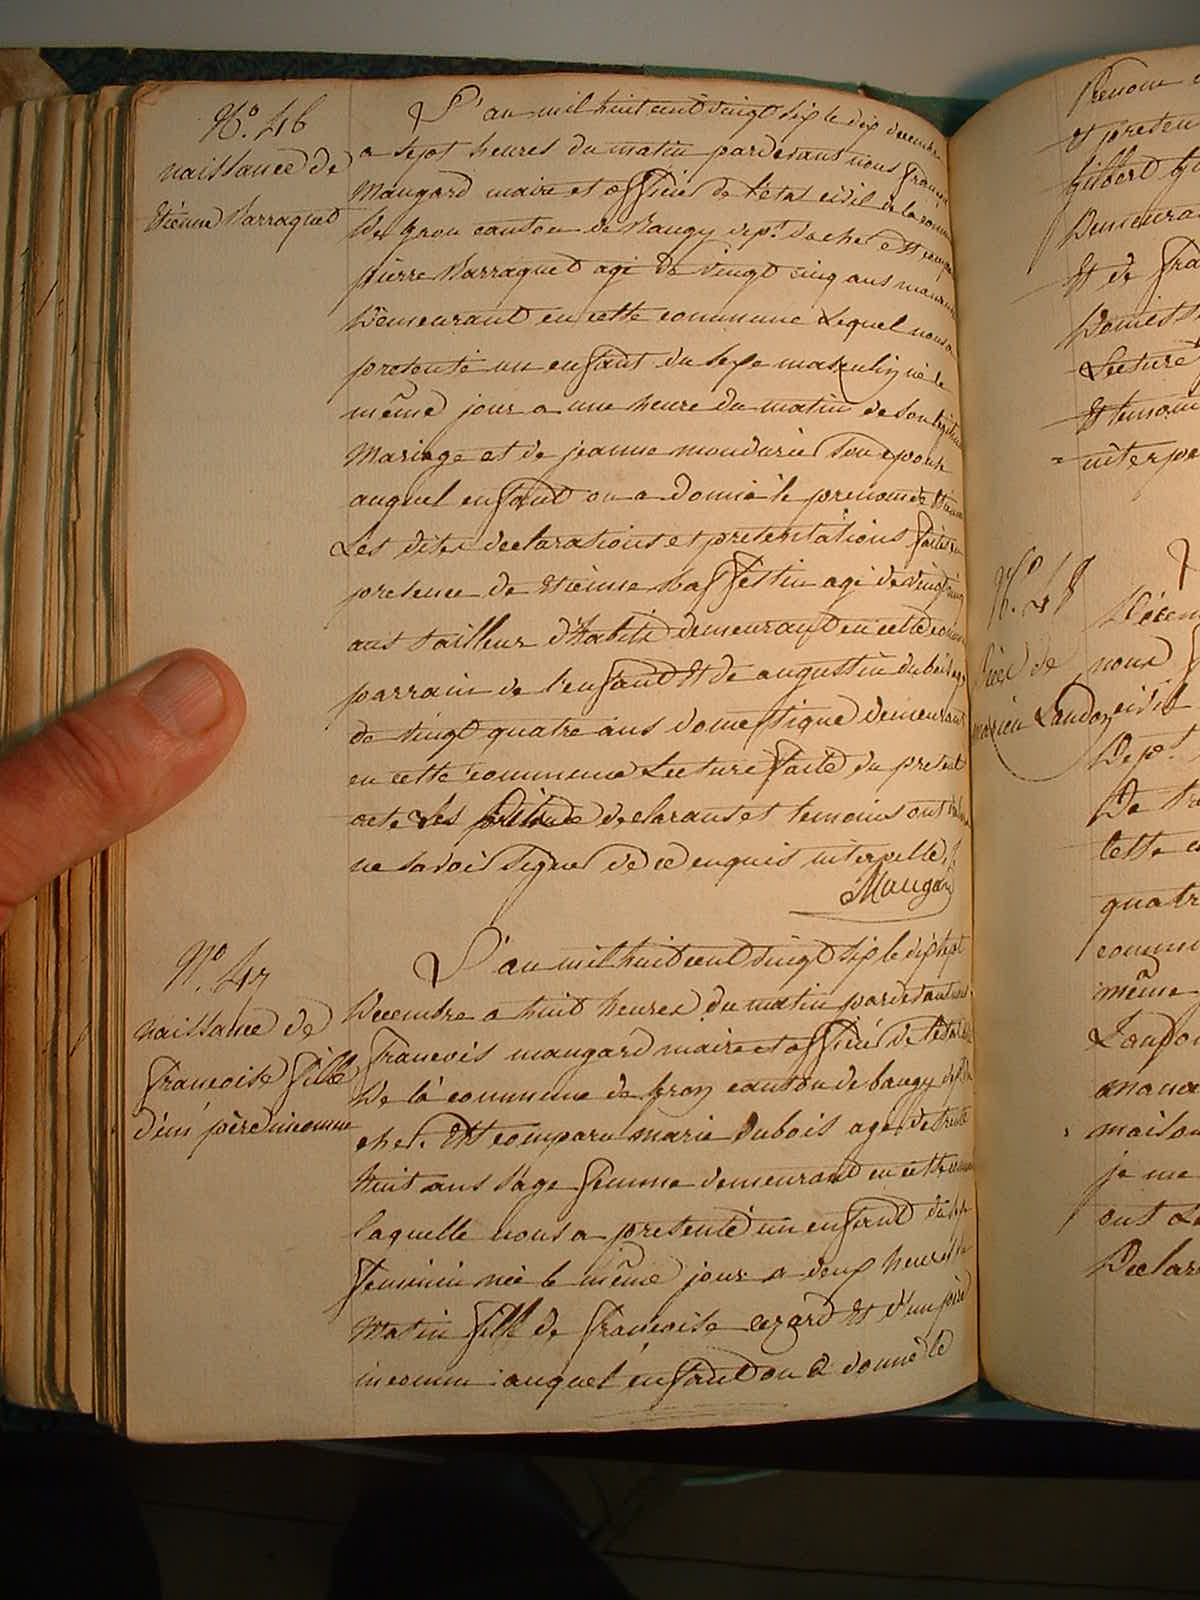 N.o 46
naissance de
Etienne Barraquet
L'an mil huit cent vingt six le dix decembre
a sept heures du matin pardevant nous françois
Maugard maire et officié de l'état civil de la commune
De Gron canton de Baugy dept. du cher Est comparu
pierre Barraquet agé de vingt cinq ans
Demeurant en cette commune Lequel nous a
presenté un enfant du sexe masculin né le
même jour a une heure du matin de son légitime
Mariage et de jeanne son epouse
auquel enfant on a donné le prenom de Etienne
Les dites declarations et presentations faites en
presence de Etienne agé de vingt cinq
ans tailleur d'habits demeurant en cette commune
parrain de l'enfant Et de augustin dubois agé
de vingt quatre ans domestique demeurant
en cette commune Lecture faite du present
acte Les declarant et temoins ont
ne savoir signer de ce enquis interpellé.
Maugard
N.o 47
naissance de
francoise fille
d'un père inconnu
L'an mil huit cent vingt six le dix sept
Decembre a huit heures du matin pardevant nous
francois maugard maire et officié de l'état civil
De la commune de Gron canton de baugy dept. du
cher. Est comparu marie dubois agé de trente
huit ans sage femme demeurant en cette commune
laquelle nous a presenté un enfant du sexe
feminin née le même jour a deux heures du
Matin fille de francoise cezard Et d'un père
inconnu auquel enfant on a donné le
Prenom
et presen
Gilbert
Demeura
Et de fra
Domest
Lecture
Et temoin
interpe
N.o 48
de
Landoy
Decem
nous
civil
Dep.t
De tre
cette c
quatr
commu
même
Landoy
maison
je me
ont
Declar